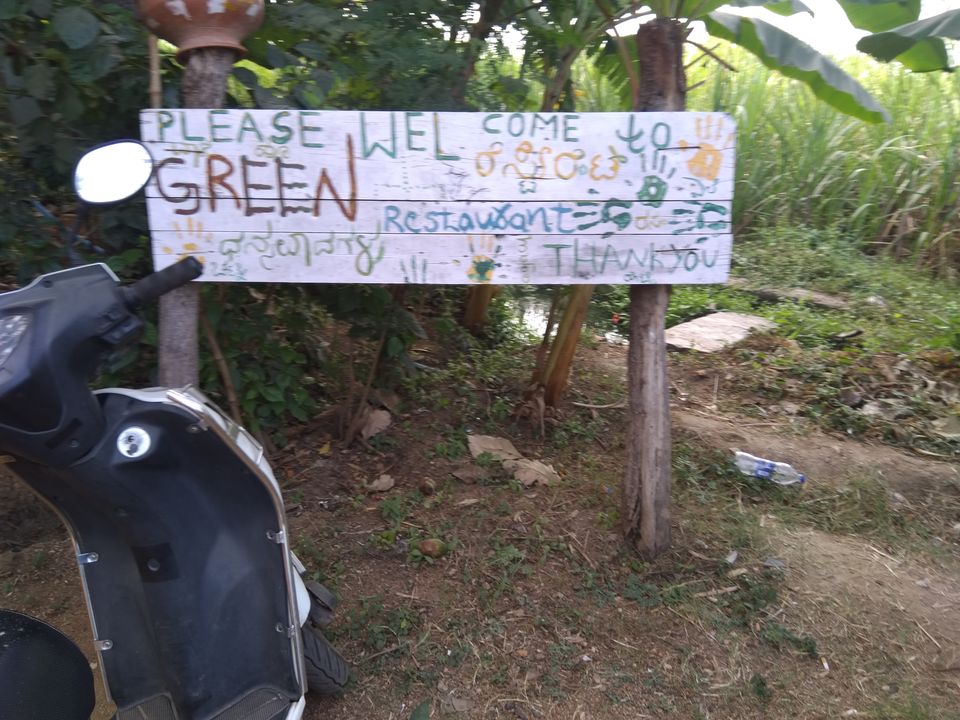 PLEASE WELCOME TO
GREEN
Restaurant
ಧನ್ಯವಾದಗಳು THANK YOU